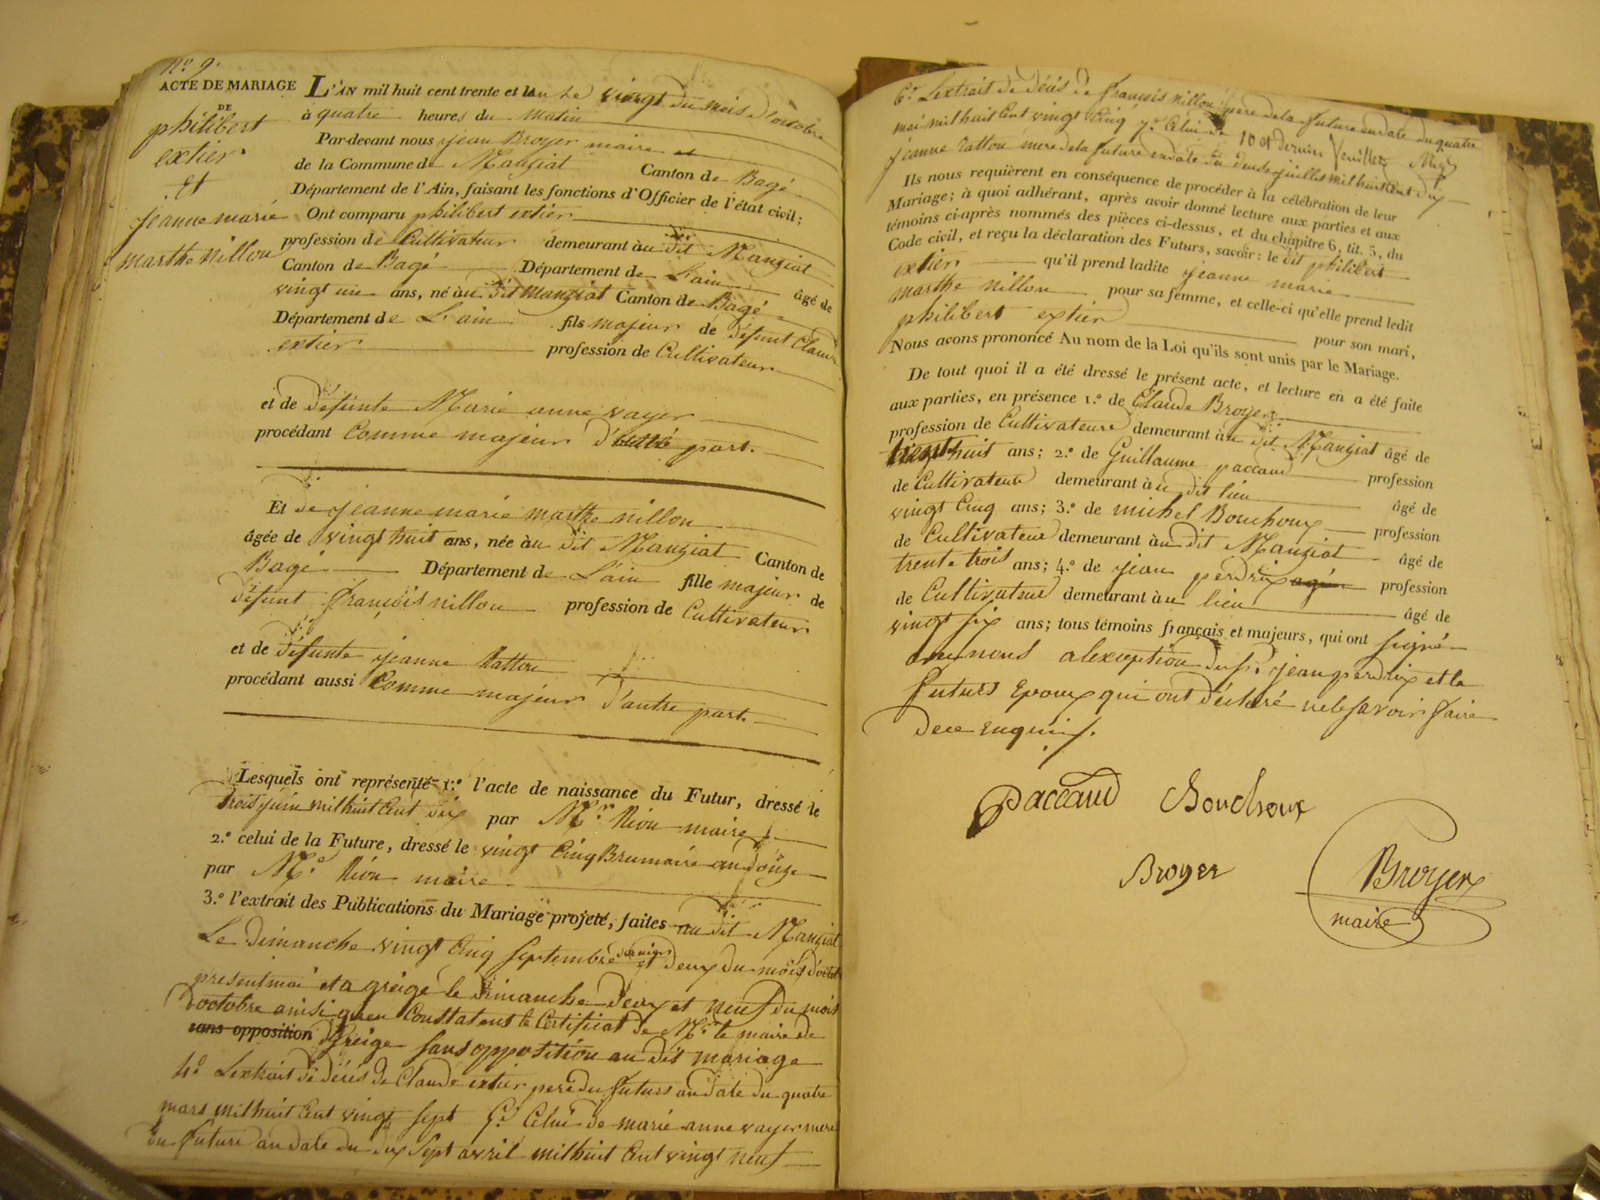 N.º 9.
ACTE DE MARIAGE
DE
philibert
extier
et
jeanne marie
marthe nillon
L'AN mil huit cent trente et un Le vingt du mois d'octobre
à quatre heures du Matin
Par-devant nous jean Broyer maire et
de la Commune de Manziat Canton de Bagé
Département de l'Ain, faisant les fonctions d'Officier de l'état civil;
Ont comparu philibert extier
profession de Cultivateur demeurant au dit Manziat
Canton de Bagé Département de L'ain âgé de
vingt un ans, né au dit Manziat Canton de Bagé
Département de L'ain fils majeur de défunt Claude
extier profession de Cultivateur
et de défunte Marie anne vayer
procédant Comme majeur d'une part.
Et de jeanne marie marthe nillon
âgée de vingt huit ans, née au dit Manziat Canton de
Bagé Département de L'ain fille majeur de
défunt françois nillon profession de Cultivateur
et de défunte jeanne Rattou
procédant aussi Comme majeur d'autre part.
Lesquels ont représenté 1.º l'acte de naissance du Futur, dressé le
trois juin mil huit Cent dix par Mr. Nion maire
2.º celui de la Future, dressé le vingt Cinq Brumaire an douze
par Mr. Nion maire
3.º l'extrait des Publications du Mariage projeté, faites au dit Manziat
Le dimanche vingt Cinq septembre dernier et deux du mois d'octobre
present moi et a greige le dimanche deux et neuf du mois
d'octobre ainsi quen Constatent le Certificat de Mr. le maire de
sans opposition Greige sans opposition au dit mariage
4.º Lextrait de décés de Claude extier pere du futurs en date du quatre
mars mil huit Cent vingt sept 5.º Celui de marie anne vayer mere
du future en date du dix sept avril mil huit Cent vingt neuf
6.º Lextrait de décés de françois nillon pere de la future en date du quatre
mai mil huit Cent vingt Cinq 7.º Celui de 10 et dernier feuillet
jeanne Rattou mere de la future en date du deux juillet mil huit Cent dix
Ils nous requièrent en conséquence de procéder à la célébration de leur
Mariage; à quoi adhérant, après avoir donné lecture aux parties et aux
témoins ci-après nommés des pièces ci-dessus, et du chapitre 6, tit. 5, du
Code civil, et reçu la déclaration des Futurs, savoir: le dit philibert
extier qu'il prend ladite jeanne marie
marthe nillon pour sa femme, et celle-ci qu'elle prend ledit
philibert extier pour son mari,
Nous avons prononcé Au nom de la Loi qu'ils sont unis par le Mariage.
De tout quoi il a été dressé le présent acte, et lecture en a été faite
aux parties, en présence 1.º de Claude Broyer
profession de Cultivateur demeurant au dit Manziat âgé de
trente huit ans; 2.º de Guillaume paccaud profession
de Cultivateur demeurant au dit lieu âgé de
vingt Cinq ans; 3.º de michel Bouchoux profession
de Cultivateur demeurant au dit Manziat âgé de
trente trois ans; 4.º de jean perdrix agé profession
de Cultivateur demeurant au lieu âgé de
vingt six ans; tous témoins français et majeurs, qui ont signé
avec nous a lexception du sr. jean perdrix et le
futurs Epoux qui ont déclaré ne le savoir faire
de ce enquis.
Paccaud Bouchoux
Broyer Broyer
maire